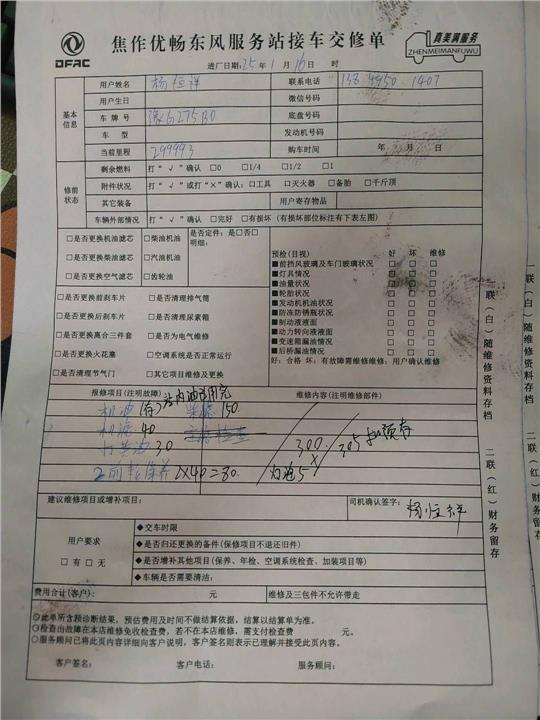 DFAC
焦作优畅东风服务站接车交修单
真美满服务
ZHENMEIMANFUWU
进厂日期:25年1月16日 时间:
基本信息
用户姓名 杨恒祥 联系电话
用户生日 微信号码
车牌号 豫G275B0 底盘号码
车型 发动机号码
当前里程 299993 购车时间 年 月 日
修前状态
剩余燃料 打“√”确认 □0 □1/4 □1/2 □1
附件状况 打“√”或打“×”确认:□工具 □灭火器 □备胎 □千斤顶
其它装备 用户寄存物品
车辆外部情况 打“√”确认 □完好 □有损坏(有损坏部位标注有下表左图)
□是否更换机油滤芯 □柴油机油
□是否更换柴油滤芯 □汽油机油
□是否更换空气滤芯 □齿轮油
是否定件:是□否□
明细:
□是否更换前刹车片 □是否清理排气筒
□是否更换后刹车片 □是否清理尿素箱
□是否更换离合三件套 □是否为电气维修
□是否更换火花塞 □空调系统是否正常运行
□是否清理节气门 □其它项目维修及更换
预检(目视) 好 坏 维修
■前挡风玻璃及车门玻璃状况 □ □ □
■灯具情况 □ □ □
■油量状况 □ □ □
■轮胎状况 □ □ □
■发动机机油状况 □ □ □
■防冻防锈瓶状况 □ □ □
■制动液液面 □ □ □
■动力转向液面 □ □ □
■变速箱漏油情况 □ □ □
■后桥漏油情况 □ □ □
好:合格 坏:有故障需维修维修:用户确认维修
报修项目(注明故障) 维修内容(注明维修部件)
机油(存)
150
机滤 40
30
2×40=80
300
305
建议维修项目或增补项目: 司机确认签字: 杨恒祥
用户要求
□有 □无
◆交车时限
◆是否归还更换的备件(保修项目不退还旧件)
◆是否增补其他项目(保养、年检、空调系统检查、加装项目等)
◆车辆是否需要清洁:
费用合计(客户): 元 维修及三包件不允许带走
◇此单所含预诊断结果,预估费用及时间不做结算依据,结算以结算单为准。
◇检查出故障在本店维修免收检查费,若不在本店维修,需支付检查费 元。
◇服务顾问已将此页内容详细向客户说明,客户签名则表示已理解并接受此页内容。
客户签名: 客户电话: 服务顾问:
一联(白)随维修资料存档
二联(红)财务留存